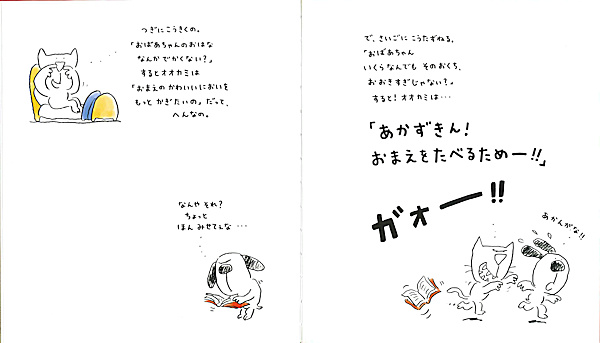 つぎにこうきくの。
「おばあちゃんのおはな
なんか でかくない？」
するとオオカミは
「おまえの かわいいにおいを
もっと かぎたいの」 だって、
へんなの。
なんや それ？
ちょっと
ほん みせてぇな …
で、さいごに こうたずねる。
「おばあちゃん
いくらなんでも そのおくち、
おおきすぎじゃない？」
すると！ オオカミは…
「あかずきん！
おまえをたべるためー!!」
ガォー!!
あかんがな!!